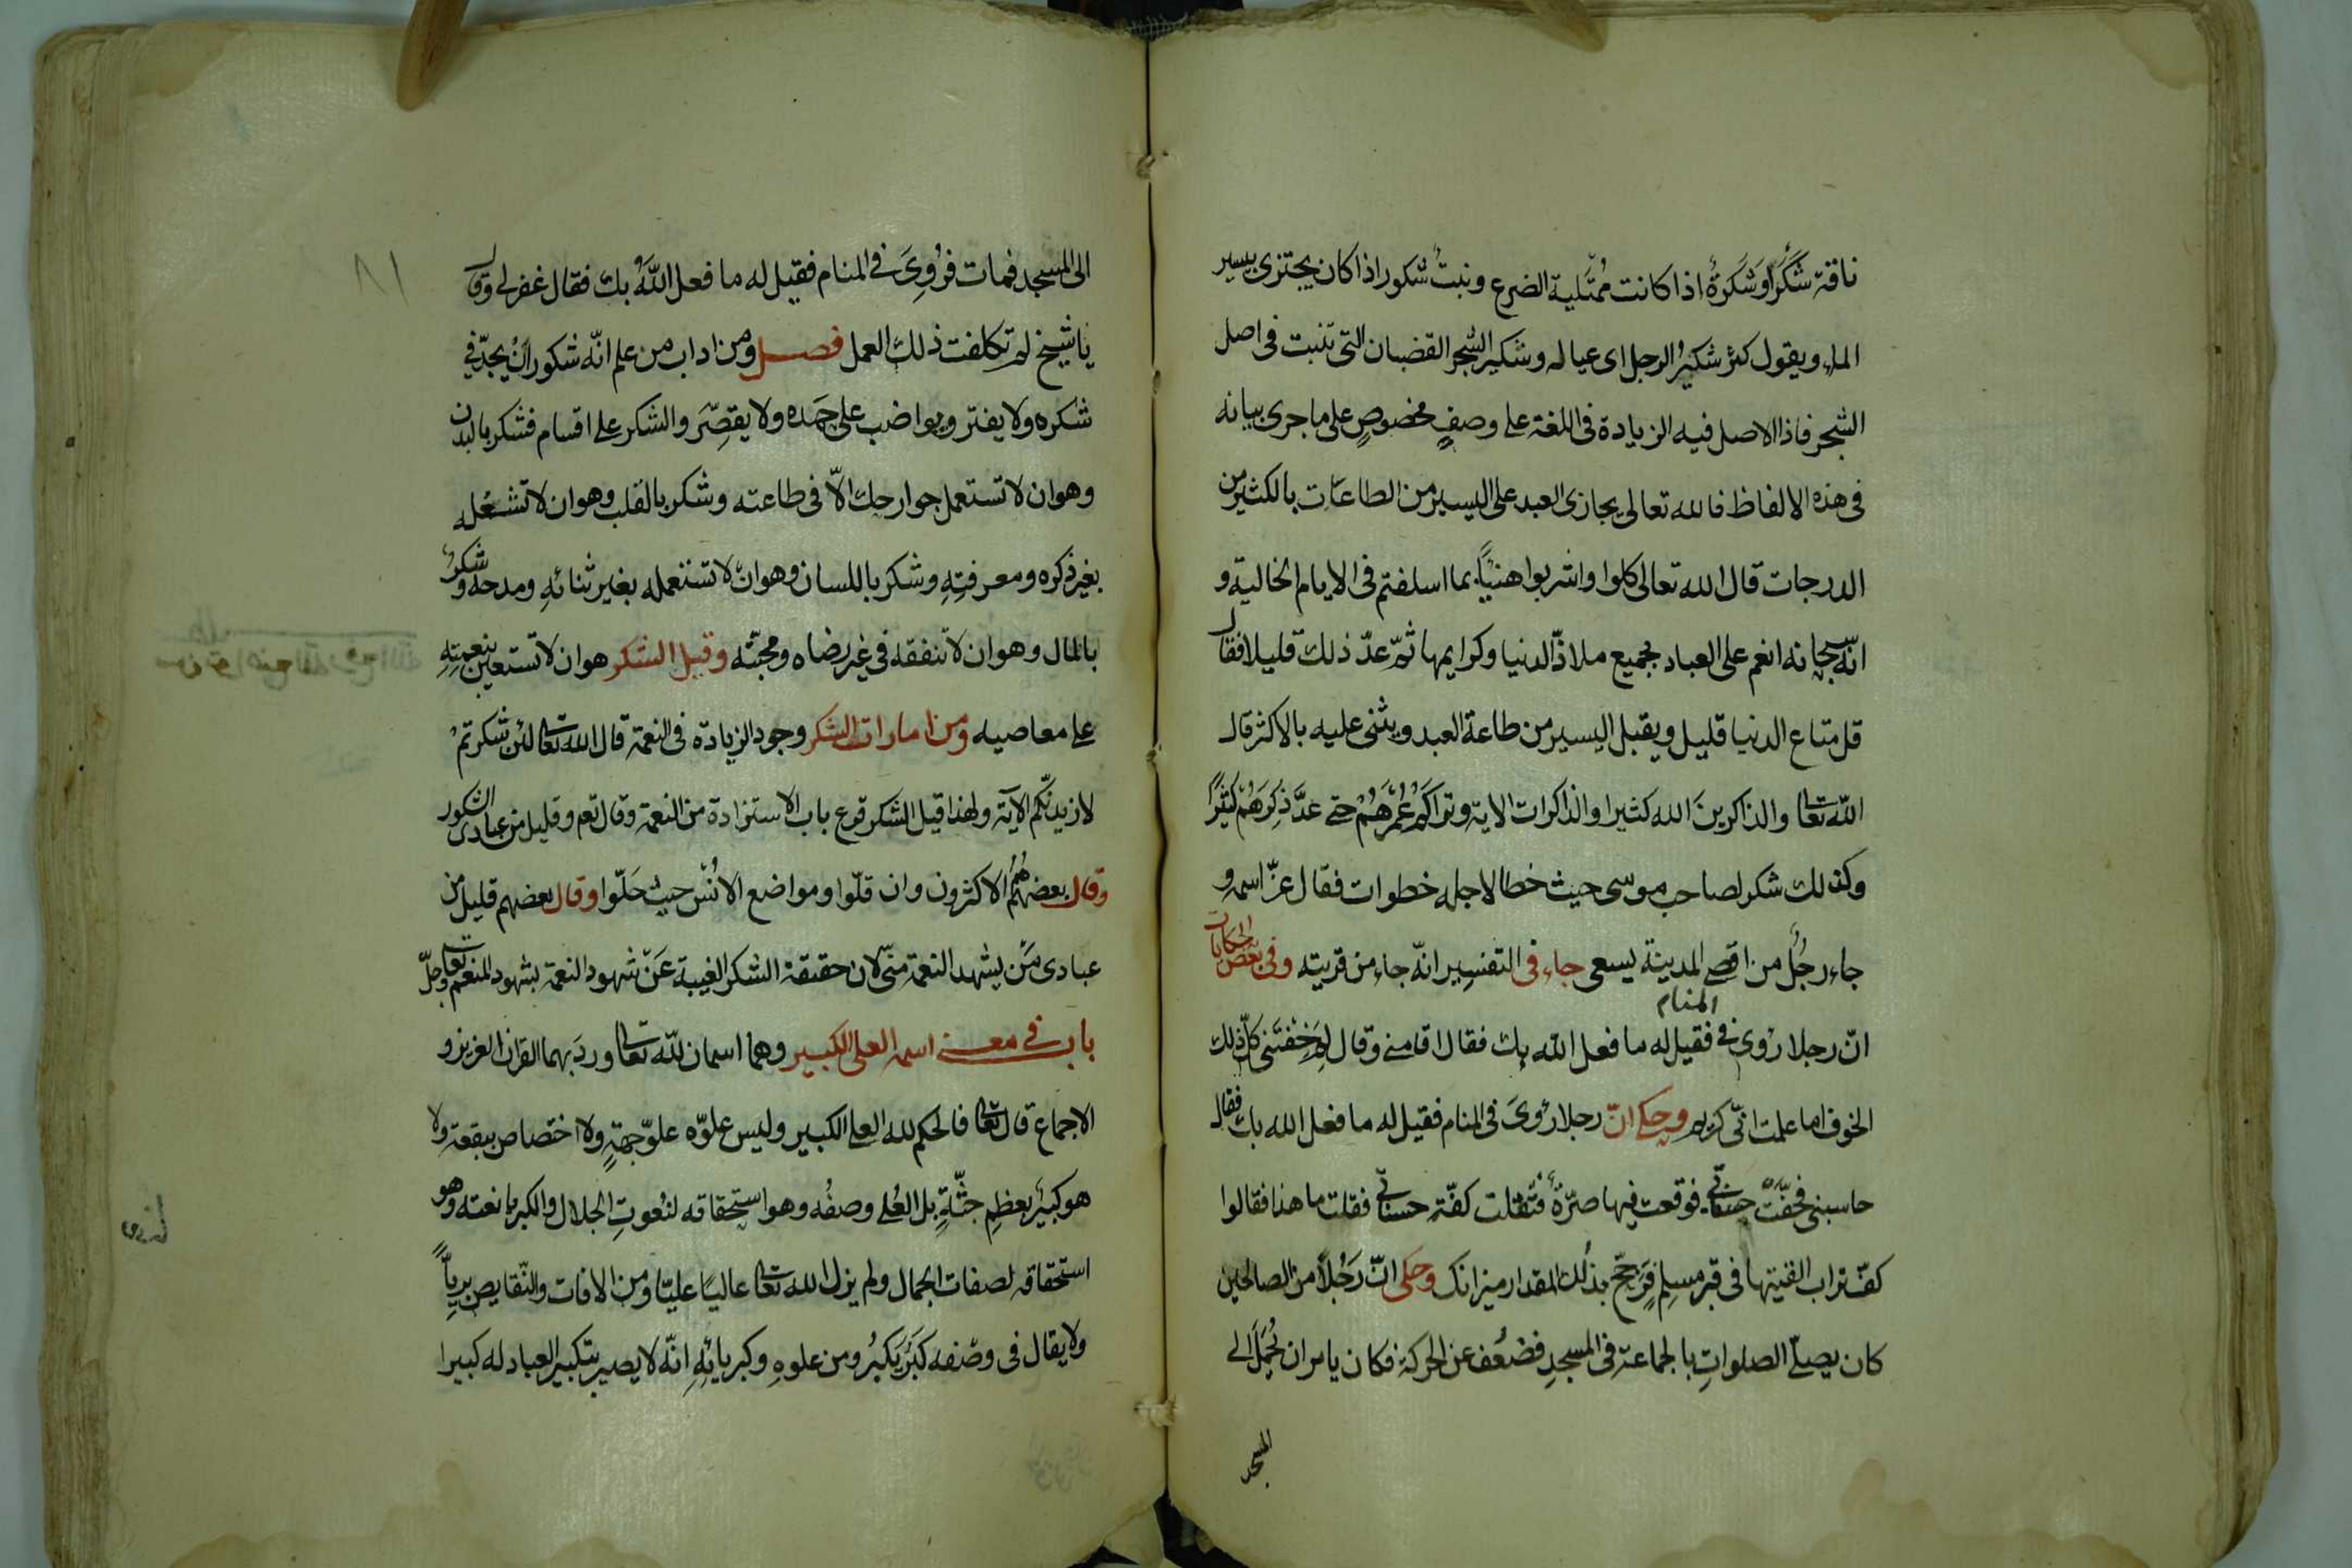 ناقة شَكَرٌ اوشَكِرَةٌ اذا كانت مُمْتَلية الضرع ونبتٌ شكور اذا كان يجتزى بيسير
الماء ويقول كثر شكيرُ الرجل اى عياله وشكير الشجر القضبان التى تنبت فى اصل
الشجر فاذا الاصل فيه الزيادة فى اللغة على وصفٍ مخصوصٍ على ماجرى بيانه
فى هذه الالفاظ فالله تعالى يجازى العبد على اليسير من الطاعات بالكثير من
الدرجات قال الله تعالى كلوا واشربوا هنيًا بما اسلفتم فى الايام الخالية و
انّه سبحانه انعم على العباد بجميع ملاذّ الدنيا وكرايمها ثمّ عدّ ذلك قليلا فقال
قل متاع الدنيا قليل ويقبل اليسير من طاعة العبد ويثنى عليه بالاكثر قال
الله تعا والذاكرينَ الله كثيرا والذاكرات الاية وتراكم عُمْرَهُمْ حتى عدَّ ذِكرَهُمْ كثيرًا
وكذلك شكر لصاحب موسى حيث خطا لاجله خطوات فقال عزّ اسمه و
جاء رجُل من اقصى المدينة يسعى جاء فى التفسير انّه جاء من قريته وفى بعض الحكايات
انّ رجلا رؤى فى المنام فقيل له ما فعل الله بك فقال اقامنى وقال لِمَ خِفْتَنى كلّ ذلك
الخوف اما علمت انّى كريم وحكى انّ رجلا رؤىَ فى المنام فقيل له ما فعل الله بك فقال
حاسبنى فخفّتْ حسناتى فوقعت فيها صرّةٌ فثقلت كفّة حسناتى فقلت ما هذا فقالوا
كفّ تراب القيتها فى قبر مسلمٍ فرَجَحَ بذلك المقدار ميزانك وحكى انّ رَجُلًا من الصالحين
كان يصلّى الصلواتِ بالجماعة فى المسجدِ فضعُف عن الحركة فكان يامر ان يُحْمَلَ الى
المسجد
٨١
الى المسجد فمات فرُؤِىَ فى المنام فقيل له ما فعل اللّهُ بك فقال غفر لى وقال
يا شيخ لم تكلفت ذلك العمل فصل ومن اداب من علم انّه شكور انْ يجدّ فى
شكره ولا يفتر ويواضب على حَمَده ولا يقصِّرَ والشكر على اقسام فشكر بالبدن
وهو ان لا تستعمل جوارحك الاّ فى طاعته وشكر بالقلب وهو ان لا تشغله
بغير ذكره ومعرفتِهِ وشكر باللسان وهو ان لا تستعمله بغير ثنائهِ ومدحه وشكرٌ
بالمال وهو ان لا تنفقه فى غير رضاه ومحبّته وقيل الشكر هو ان لا تستعين بنعمتهِ
على معاصيه ومن امارات الشكر وجود الزيادة فى النعمة قال الله تعا لئن شكرتمْ
لازيدنّكم الآية ولهذا قيل الشكر قرع باب الاستزادة من النعمة وقال تعم وقليل من عبادى الشكور
وقال بعضهم هُمُ الاكثرون وان قلّوا ومواضع الاُنْس حيث حَلّوا وقال بعضهم قليل من
عبادى مَنْ يشهد النعمة منّى لان حقيقة الشكر الغيبة عَنْ شهود النعمة بشهود المنعم تعا وجلّ
باب فى معنى اسمه العلى الكبير وهما اسمان للّه تعا وردَ بهما القران العزيز و
الاجماع قال تعا فالحكم لله العلى الكبير وليس علوّه علوّ جهةٍ ولا اختصاص ببقعة ولا
هو كبيرٌ بعظمِ جثّةٍ بل العُلى وصفُه وهو استحقاقه لنُعوتِ الجلال والكبريا نعته وهو
استحقاقه لصفات الجمال ولم يزل الله تعا عاليًا عليّا ومن الافات والنّقايص بريًّا
ولا يقال فى وصْفه كَبُرَ يَكبُرُ ومن علوهِ وكبريائِهِ انّه لا يصير بتكبير العباد له كبيرا